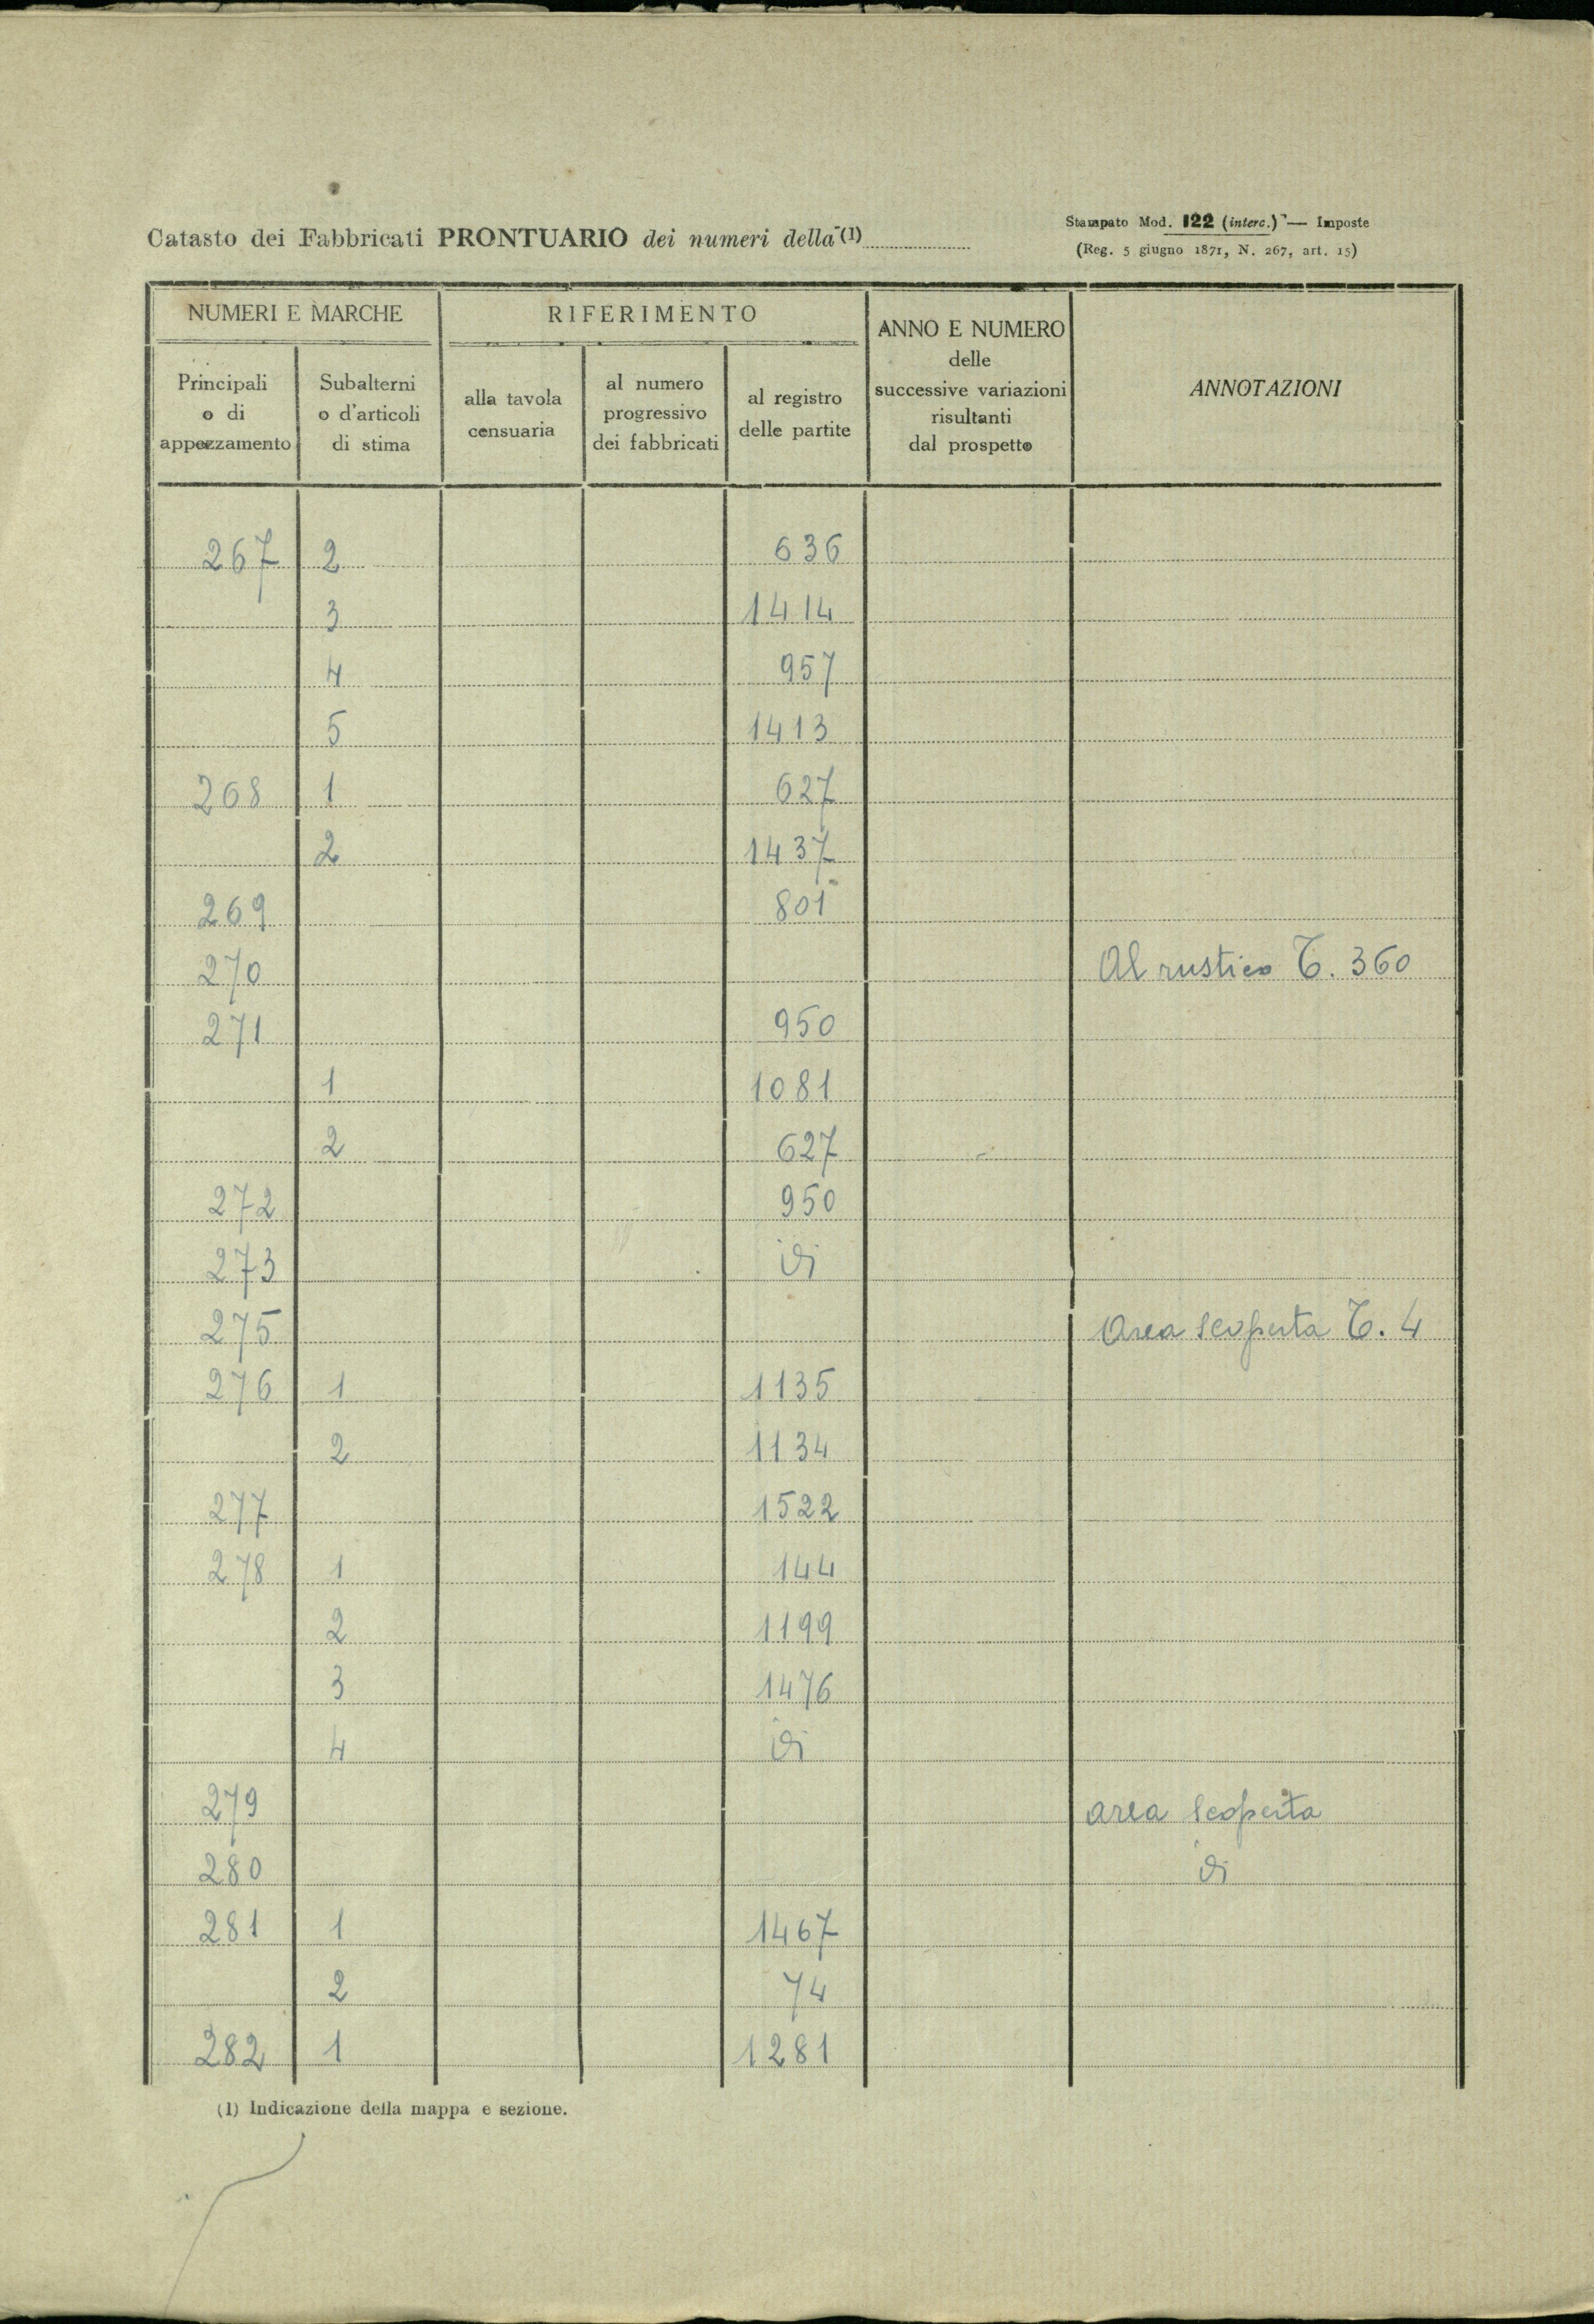 Catasto dei Fabbricati PRONTUARIO dei numeri della (1)
Stampato Mod. 122 (interc.) — Imposte
(Reg. 5 giugno 1871, N. 267, art. 15)
NUMERI E MARCHE
RIFERIMENTO
ANNO E NUMERO
delle
successive variazioni
risultanti
dal prospetto
ANNOTAZIONI
Principali
o di
appezzamento
Subalterni
o d'articoli
di stima
alla tavola
censuaria
al numero
progressivo
dei fabbricati
al registro
delle partite
267 2 636
3 1414
4 957
5 1413
268 1 627
2 1437
269 801
270 Al rustico T. 360
271 950
1 1081
2 627
272 950
273 idi
275 Area scoperta T. 4
276 1 1135
2 1134
277 1522
278 1 144
2 1199
3 1476
4 idi
279 area scoperta
280 idi
281 1 1467
2 74
282 1 1281
(1) Indicazione della mappa e sezione.